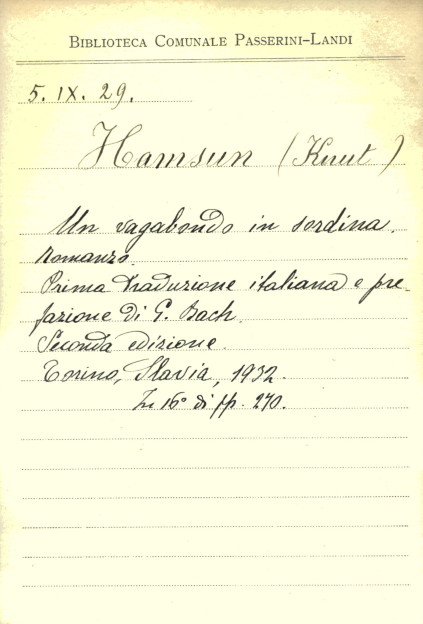 BIBLIOTECA COMUNALE PASSERINI-LANDI
5. IX. 29.
Hamsun (Knut)
Un vagabondo in sordina.
Romanzo.
Prima traduzione italiana e pre-
fazione di G. Bach.
Seconda edizione.
Torino, Slavia, 1932.
In 16° di pp. 270.